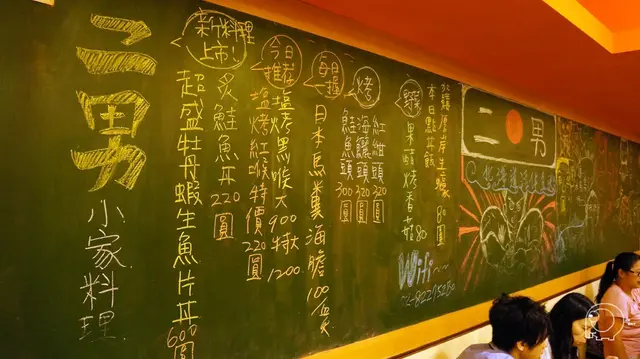 二男
小家料理
新料理上市!
超盛牡丹蝦生魚片丼 600圓
炙鮭魚丼 220圓
今日推荐
鹽烤紅喉特價220圓
鹽烤黑喉大900 特大1200
每日
日本馬糞海膽 100/盒
烤
鮭魚頭 300圓
海鱺頭 320圓
紅魽頭 320圓
野菜
果醋烤香菇 80
本日丼飯
厚岸生蠔 80圓
Wifi~
02-82295280
二男